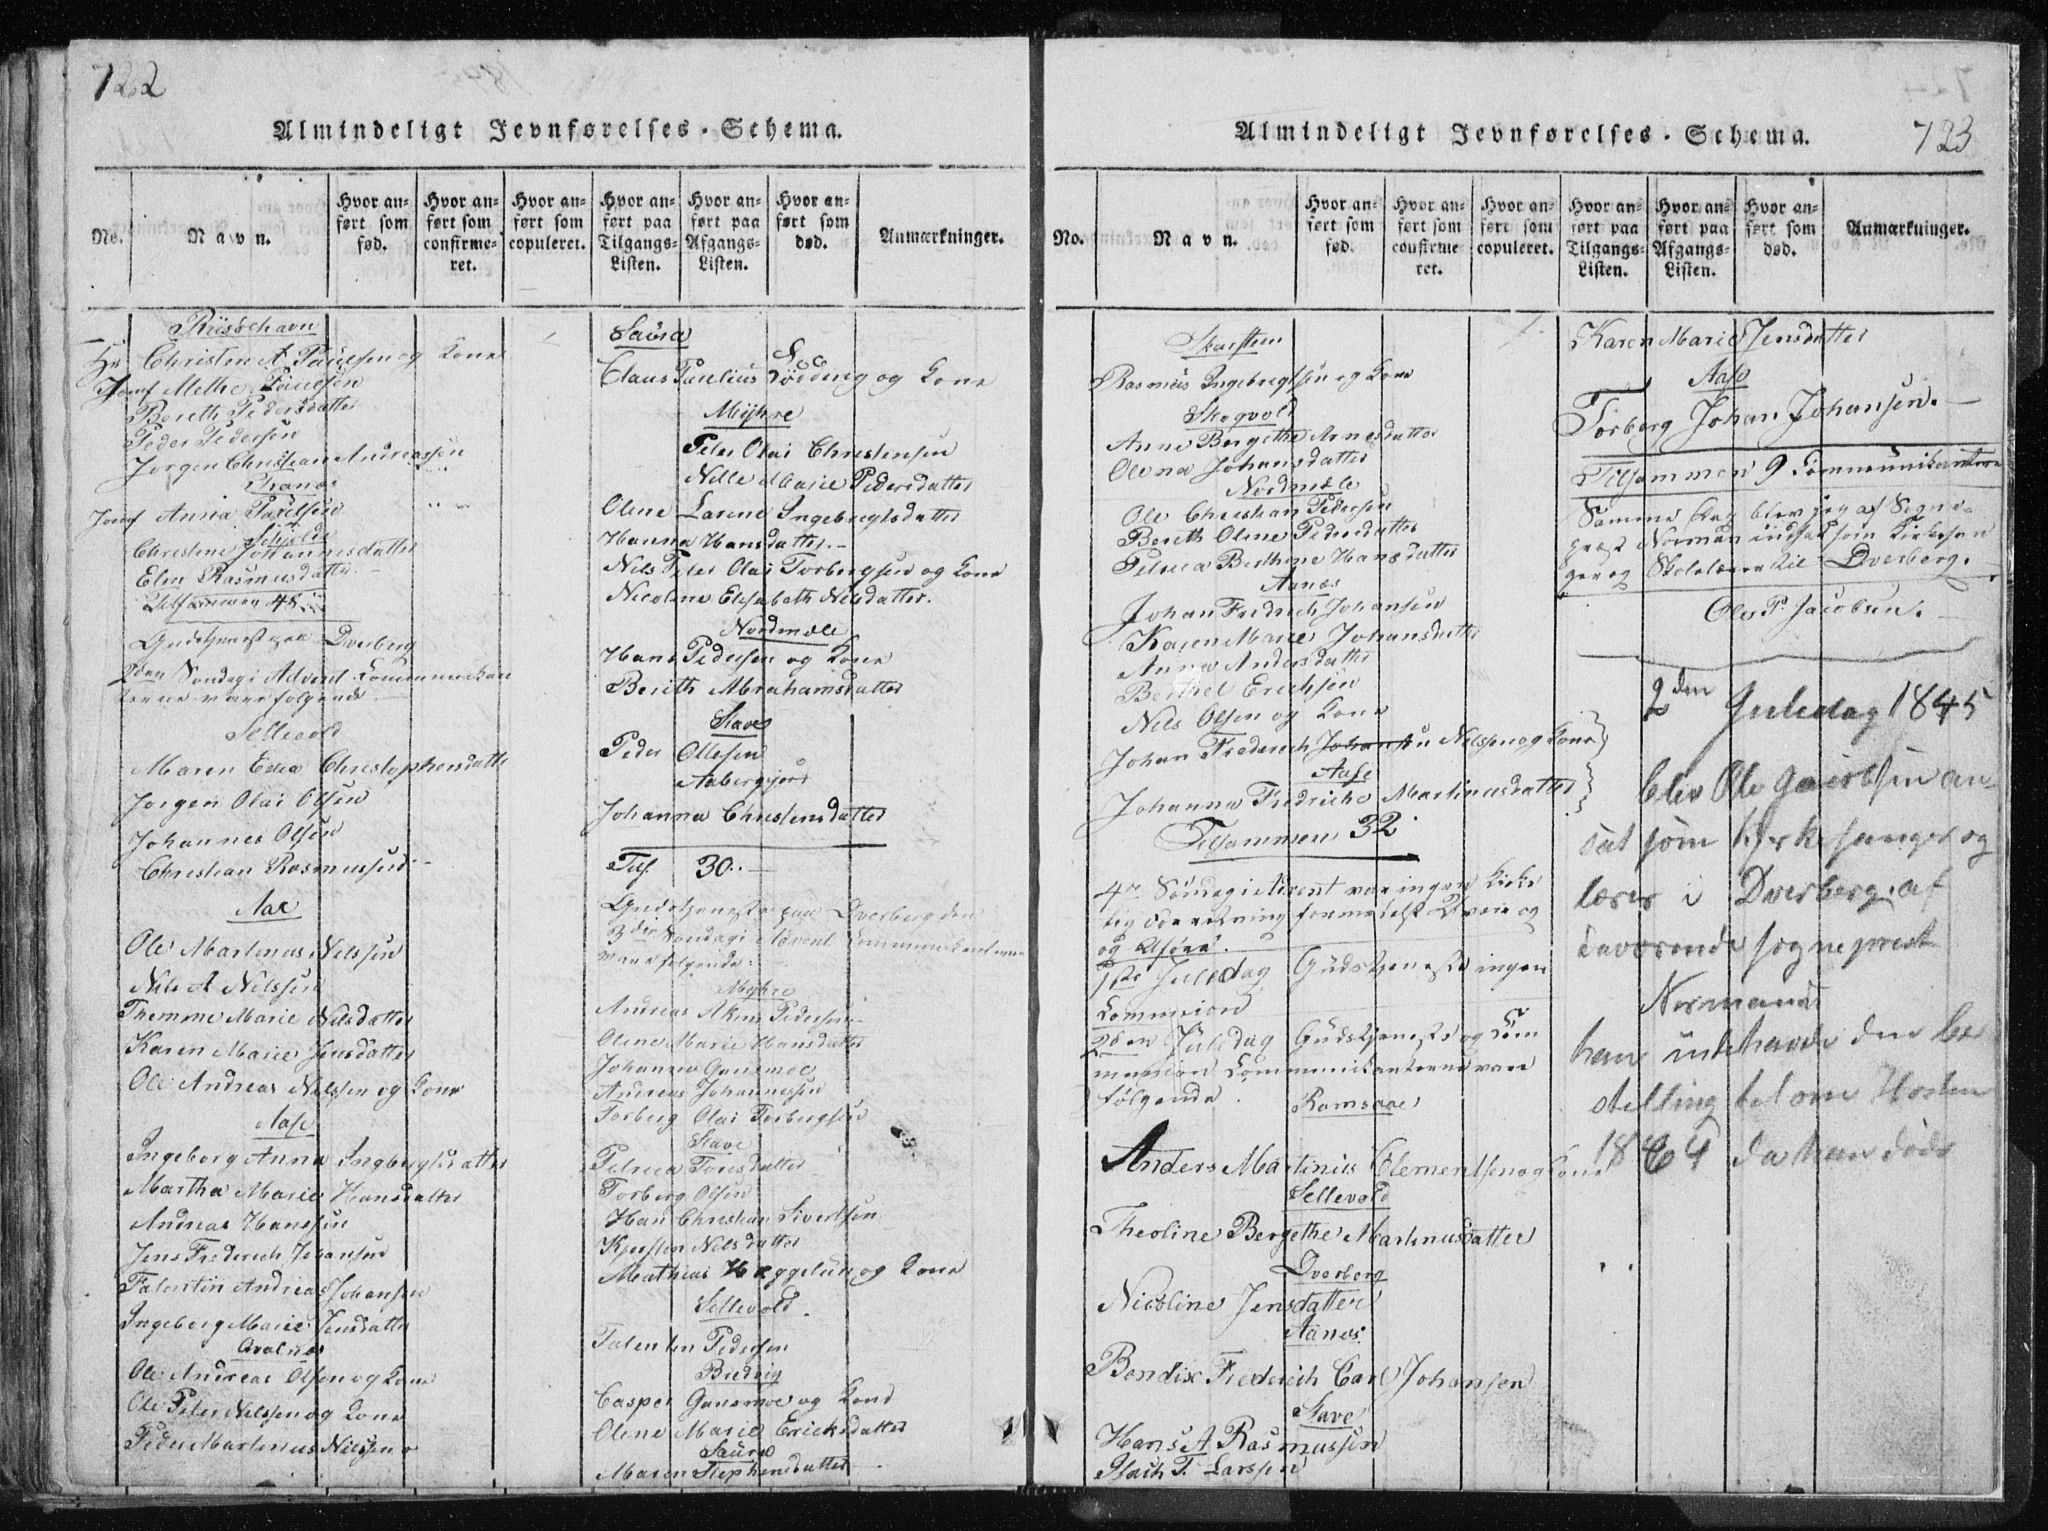 722
Almindeligt Jevnførelses-Schema.
No.
Navn.
Hvor anført som fød.
Hvor anført som confirmeret.
Hvor anført som copuleret.
Hvor anført paa Tilgangs-Listen.
Hvor anført paa Afgangs-Listen.
Hvor anført som død.
Anmærkninger.
Riisøehavn
Hr Christen A Paulsen og Kone
Jomf Methe Paulsen
Bereth Pedersdatter
Peder Pedersen
Jørgen Christian Andreassen
Jomf Anna Paulsen
Christine Johannesdatter
Elen Rasmusdatter
Tilsammen 45
Gudstjeneste paa Dverberg
2den Søndag i Advent Communikan
terne vare følgende
Sellevold
Maren Christophersdatter
Jørgen Olai Olsen
Johannes Olsen
Christian Rasmussen
Aae
Ole Martinus Nilssen
Nils A Nilssen
Themme Marie Nilsdatter
Karen Marie Jensdatter
Ole Andreas Nilssen og Kone
Aase
Ingeborg Anna Ingbregtsdatter
Martha Marie Hansdatter
Andreas Hanssen
Jens Frederich Johansen
Falentin Andreas Johansen
Ingeborg Marie Jensdatter
Ole Andreas Olsen og Kone
Ole Peter Nilssen og Kone
Peder Martinus Nilssen
Saura
Claus Parelius Lødding og Kone
Myhre
Peter Olai Christensen
Nille Marie Pedersdatter
Oline Larene Ingebregtsdatter
Hanna Hansdatter
Nils Peter Olai Torbergsen og Kone
Nicoline Elisabeth Nilsdatter.
Nordmæle
Hans Pedersen og Kone
Berith Abrahamsdatter
Stave
Peder Ollesen
Aabergsjord
Johanna Christensdatter
Tils. 30..
Gudstjeneste paa Dverberg den
3die Søndag i Advent Communikanterne
vare følgende
Myhre
Andreas Pedersen
Oline Marie Hansdatter
Johanna Gunsmoe
Andreas Johannessen
Torberg Olai Torbergsen
Stave
Petrica Toresdatter
Torberg Olsen
Hans Christian Sivertsen
Kjersten Nilsdatter
Mathias Heggelun og Kone
Sellevold
Falentin Pedersen
Bredvig
Casper Gunsmoe og Kone
Olene Marie Ericksdatter
Saura
Maren Stephensdatter
Almindeligt Jevnførelses-Schema.
723
No.
Navn.
Hvor anført som fød.
Hvor anført som confirmeret.
Hvor anført som copuleret.
Hvor anført paa Tilgangs-Listen.
Hvor anført paa Afgangs-Listen.
Hvor anført som død.
Anmærkninger.
Skarsten
Rasmus Ingebregtsen og Kone
Skogvold
Anne Bergithe Arnesdatter
Olena Johansdatter
Nordmæle
Ole Christian Pedersen
Berith Oline Pedersdatter
Petrica Berthine Hansdatter
Aanæs
Johan Fredrich Johansen
Karen Marie Johansdatter
Anna Andersdatter
Berthel Ericksen
Nils Olsen og Kone
Johan Frederich Johansen Nilsen og Kone
Aase
Johanna Fredricke Martinusdatter
Tilsammen 32
4de Søndag i Advent var ingen Kirke
lig Forretning formedelst Veir og
og Uføre.
1ste Juledag Gudstjeneste ingen
Communion
2den Juledag Gudstjeneste og Com
munion Communikanterne vare
følgende.
Ramsaae
Anders Martinius Clementsen og Kone
Sellevold
Theoline Bergethe Martinusdatter
Dverberg
Nicoline Jensdatter
Aanes
Bendix Frederich Carl Johansen
Stave
Hans A Rasmussen
Isach T. Larssen
Karen Marie Jensdatter
Aase
Torberg Johan Johansen.
Tilsammen 9 Communikantere
Samme Dag blev jeg af Sogne-
præst Norman indsat som Kirkesan
ger og Skolelærer til Dverberg.
Ole P. Jacobsen.
2den Juledag 1845
blev Ole Jacobsen an-
sat som kirkesanger og
lærer i Dverberg af
daværende sogneprest
Normand
han indehavde den be
stilling til om Høsten
1864 da han døde